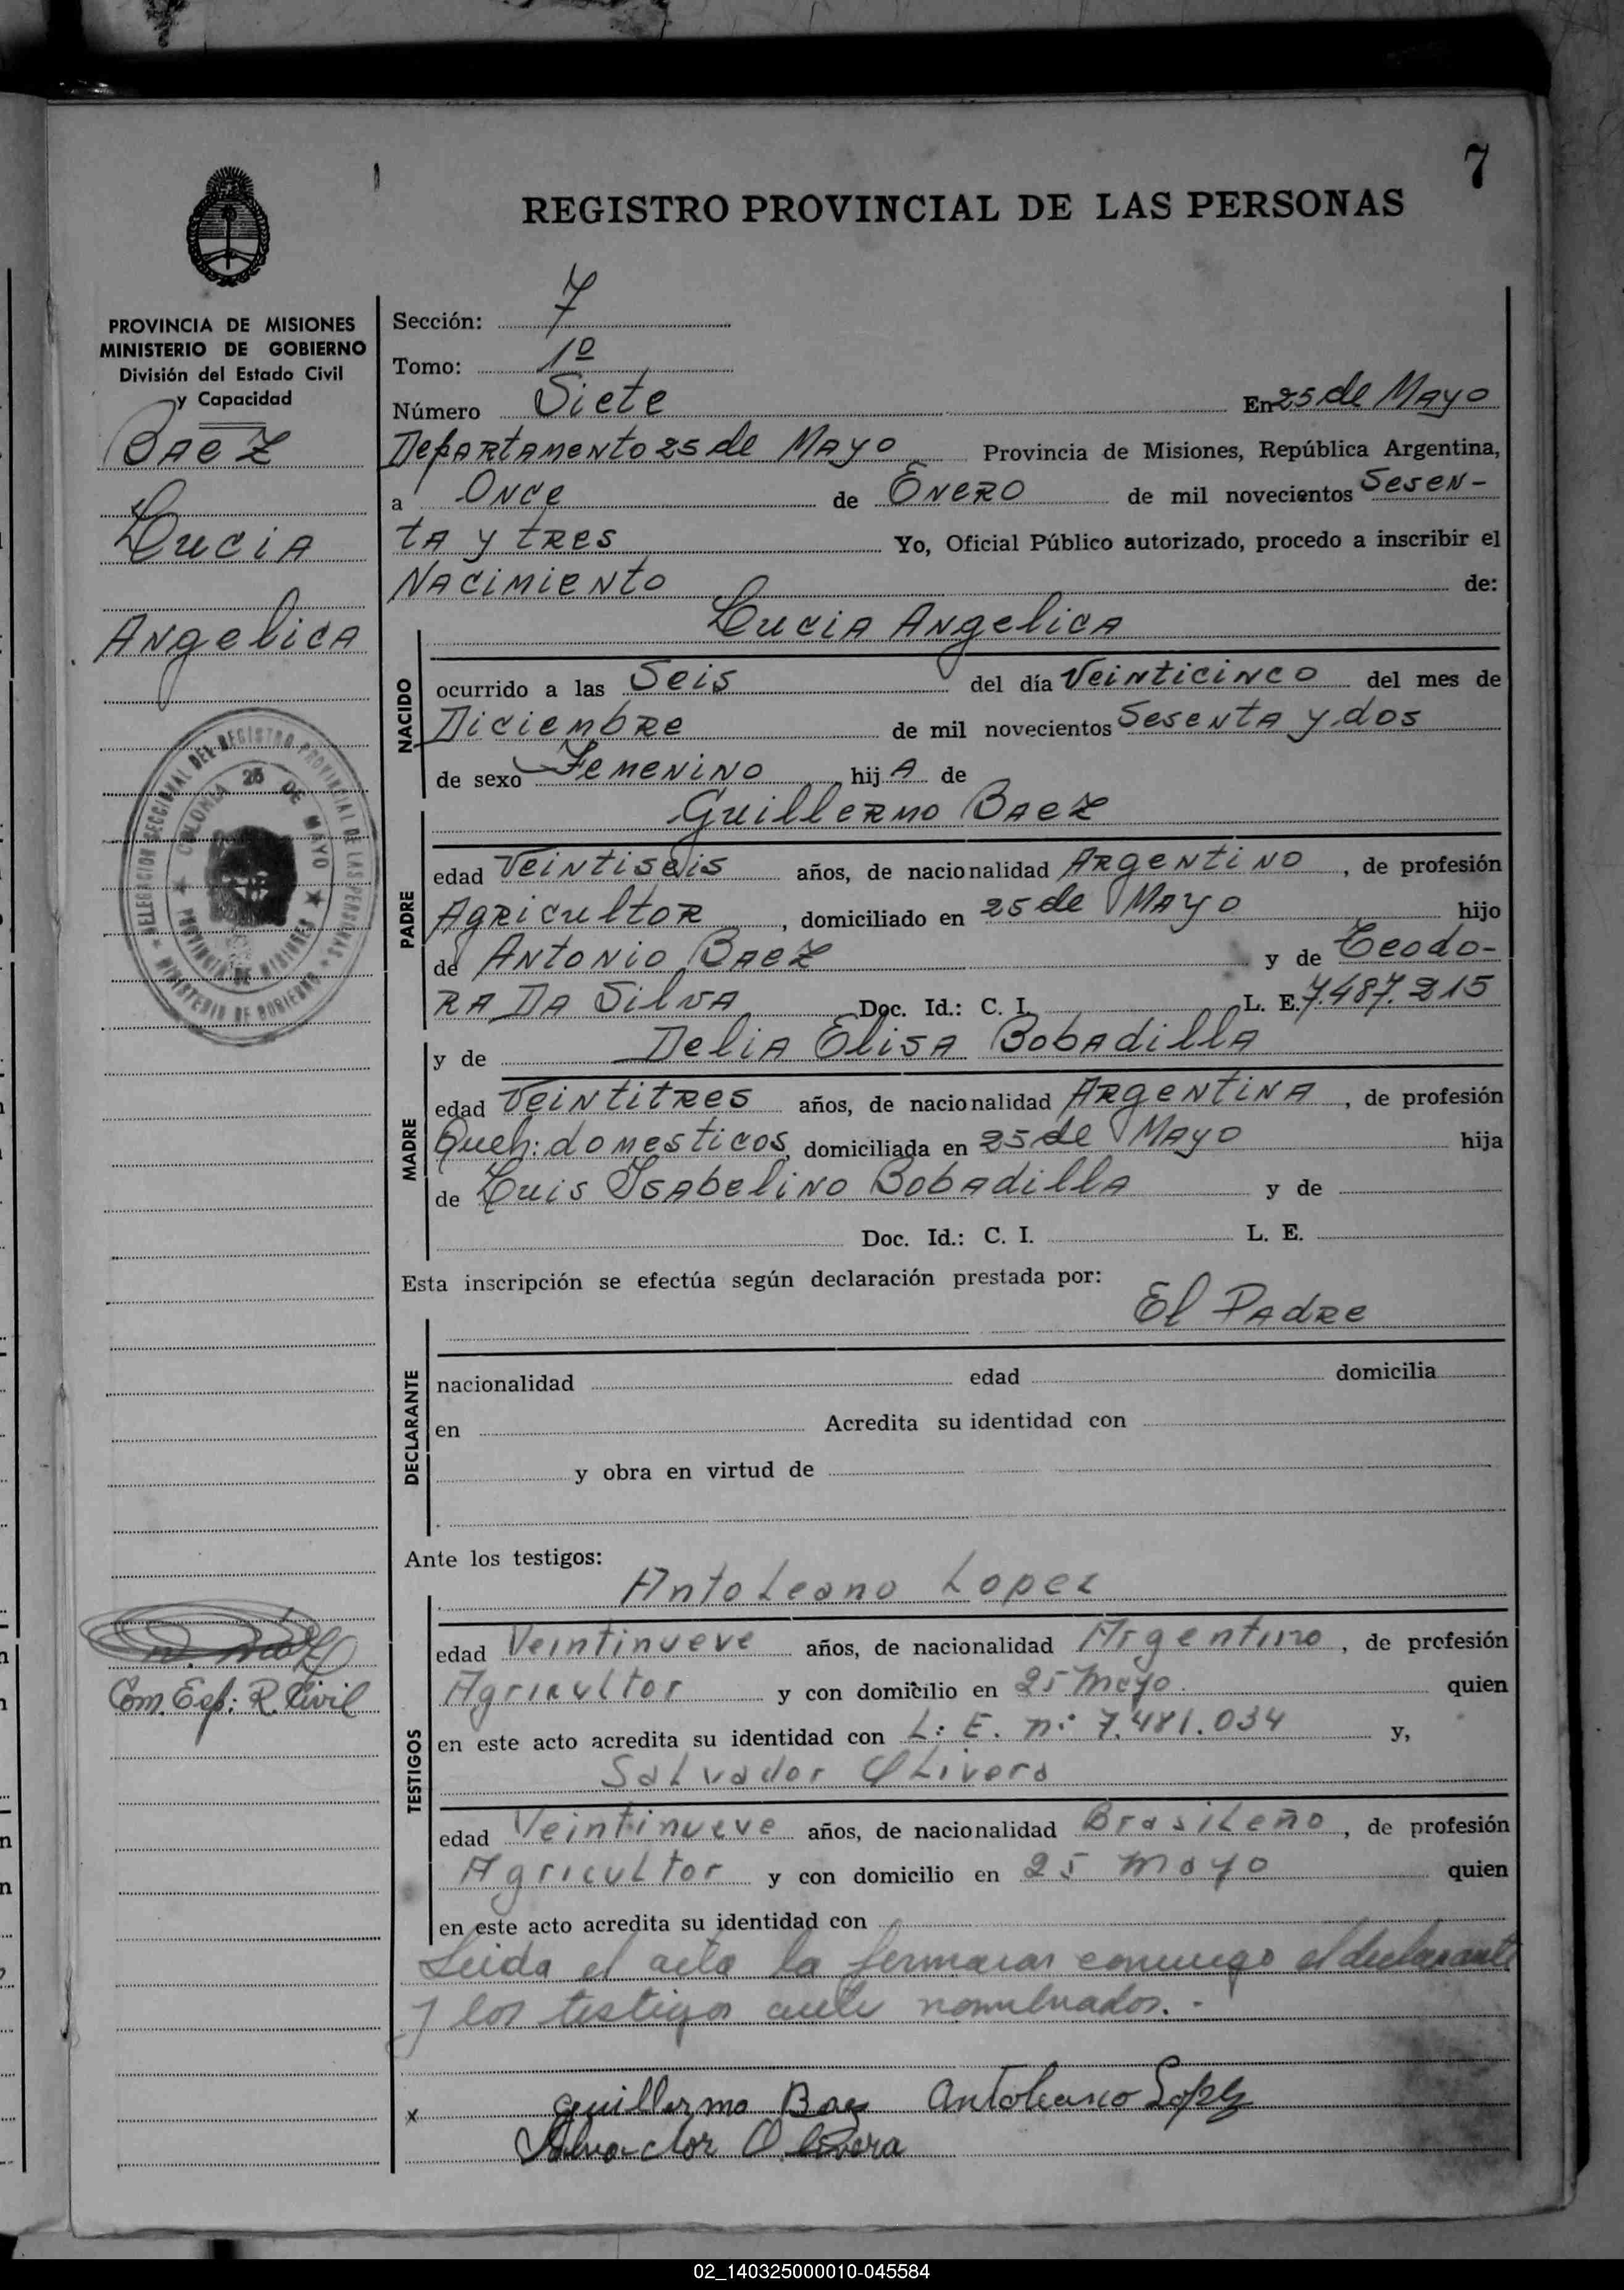 7
REGISTRO PROVINCIAL DE LAS PERSONAS
PROVINCIA DE MISIONES
MINISTERIO DE GOBIERNO
División del Estado Civil
y Capacidad
BAEZ
LUCIA
ANGELICA
DELEGACION SECCIONAL DEL REGISTRO PROVINCIAL DE LAS PERSONAS
MINISTERIO DE GOBIERNO
COLONIA 25 DE MAYO
PROVINCIA DE MISIONES
Com. Esp: R. Civil
Sección: 7
Tomo: 1º
Número Siete En 25 de Mayo
Departamento 25 de Mayo Provincia de Misiones, República Argentina,
a Once de Enero de mil novecientos Sesen-
ta y tres Yo, Oficial Público autorizado, procedo a inscribir el
Nacimiento de:
Lucia Angelica
NACIDO
ocurrido a las Seis del día Veinticinco del mes de
Diciembre de mil novecientos Sesenta y dos
de sexo Femenino, hija de
Guillermo Baez
PADRE
edad Veintiseis años, de nacionalidad Argentino, de profesión
Agricultor, domiciliado en 25 de Mayo hijo
de Antonio Baez y de Teodo-
ra Da Silva Doc. Id.: C. I. L. E. 7.487.215
y de Delia Elisa Bobadilla
MADRE
edad Veintitres años, de nacionalidad Argentina, de profesión
Queh: domesticos, domiciliada en 25 de Mayo hija
de Luis Isabelino Bobadilla y de
Doc. Id.: C. I. L. E.
Esta inscripción se efectúa según declaración prestada por:
El Padre
DECLARANTE
nacionalidad edad domicilia
en Acredita su identidad con
y obra en virtud de
Ante los testigos:
Antoleano Lopez
TESTIGOS
edad Veintinueve años, de nacionalidad Argentino, de profesión
Agricultor y con domicilio en 25 Mayo. quien
en este acto acredita su identidad con L: E. nº 7.481.034 y,
Salvador Olivera
edad Veintinueve años, de nacionalidad Brasileño, de profesión
Agricultor y con domicilio en 25 Mayo quien
en este acto acredita su identidad con
Leida el acta la firmaran conmigo el declarante
y los testigos ante nombrados. -
x Guillermo Baez Antoleano Lopez
Salvador Olivera
02_140325000010-045584